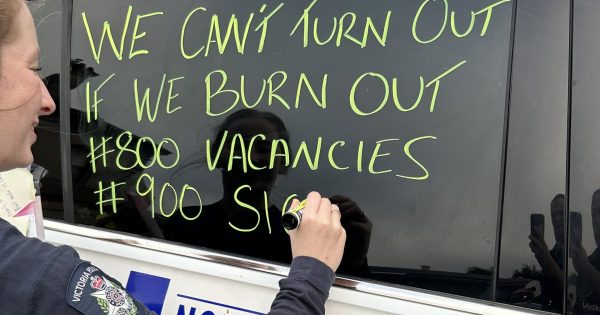 WE CAN'T TURN OUT
IF WE BURN OUT
#800 VACANCIES
#900 SIC
VICTORIA